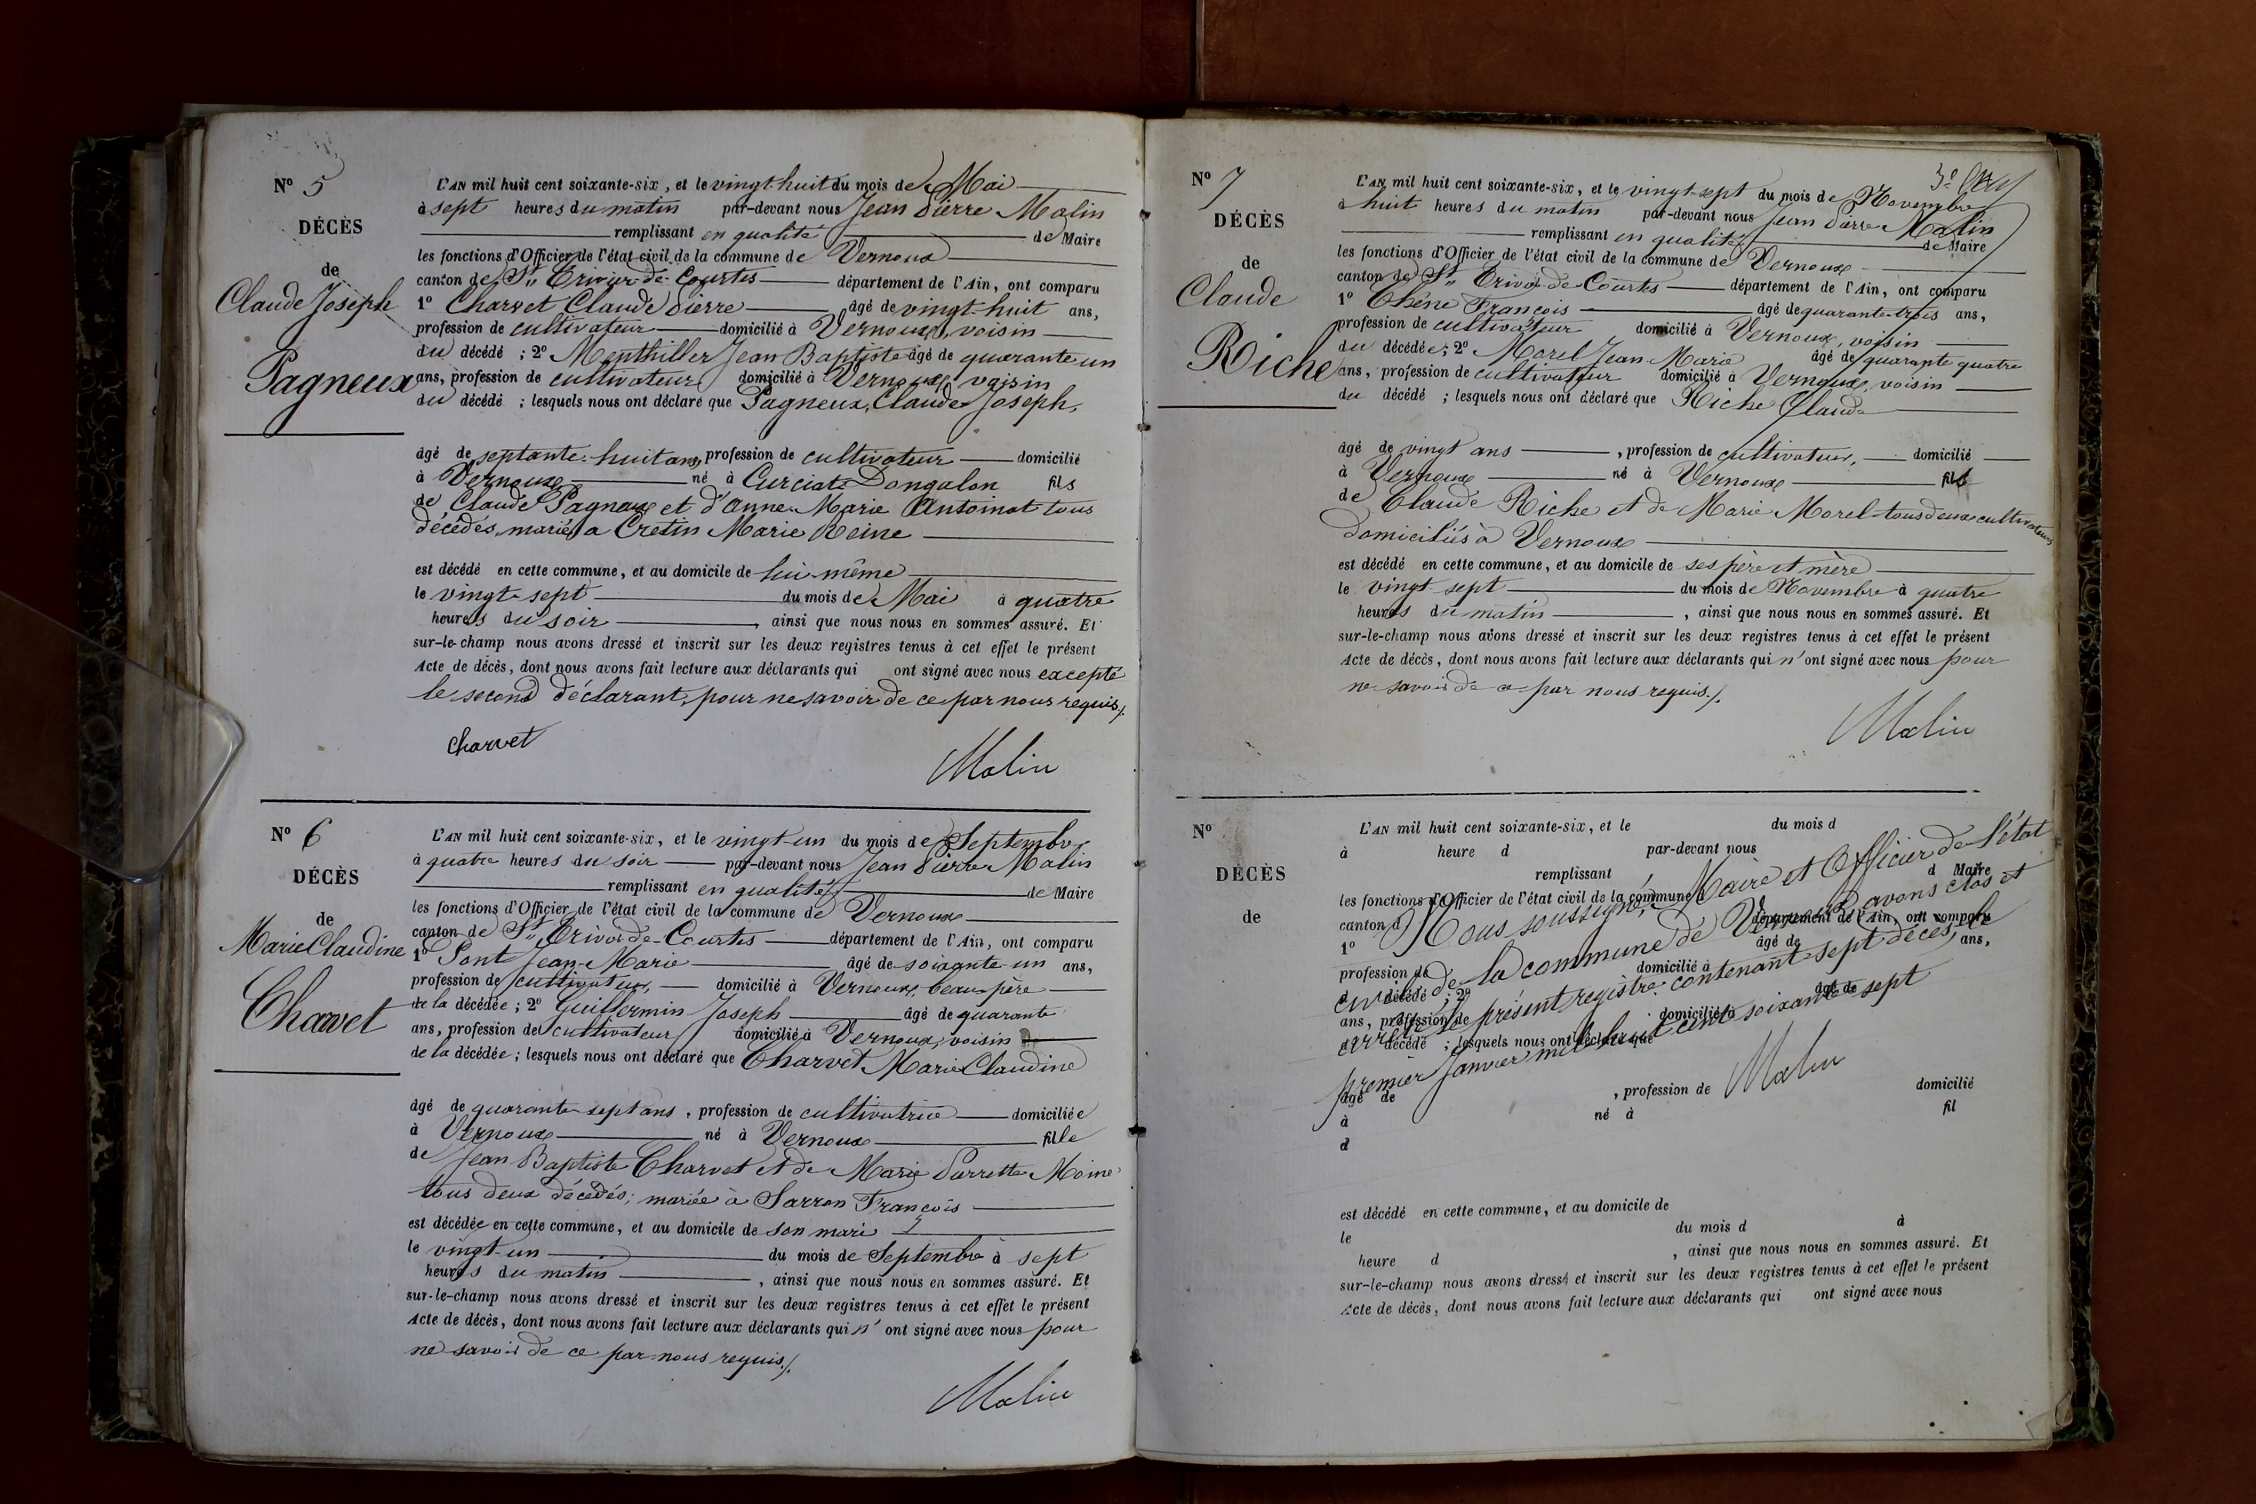 Nº 5
DÉCÈS
de
Claude Joseph
Pagneux
L'AN mil huit cent soixante-six, et le vingt-huit du mois de Mai
à sept heures du matin par-devant nous Jean Pierre Malin
remplissant en qualité de Maire
les fonctions d'Officier de l'état civil de la commune de Vernoux
canton de St Trivier-de-Courtes département de l'Ain, ont comparu
1º Charvet Claude Pierre âgé de vingt-huit ans,
profession de cultivateur domicilié à Vernoux, voisin
du décédé ; 2º Menthiller Jean Baptiste âgé de quarante un
ans, profession de cultivateur domicilié à Vernoux, voisin
du décédé ; lesquels nous ont déclaré que Pagneux, Claude Joseph,
âgé de septante-huit ans, profession de cultivateur domicilié
à Vernoux né à Curciat-Dongalon fils
de Claude Pagneux et d'Anne-Marie Antoinat tous
décédés, marié à Cretin Marie Reine
est décédé en cette commune, et au domicile de lui-même
le vingt-sept du mois de Mai à quatre
heures du soir, ainsi que nous nous en sommes assuré. Et
sur-le-champ nous avons dressé et inscrit sur les deux registres tenus à cet effet le présent
Acte de décès, dont nous avons fait lecture aux déclarants qui ont signé avec nous excepté
le second déclarant, pour ne savoir de ce par nous requis./.
Charvet
Malin
Nº 6
DÉCÈS
de
Marie Claudine
Charvet
L'AN mil huit cent soixante-six, et le vingt-un du mois de Septembre
à quatre heures du soir par-devant nous Jean Pierre Malin
remplissant en qualité de Maire
les fonctions d'Officier de l'état civil de la commune de Vernoux
canton de St Trivier-de-Courtes département de l'Ain, ont comparu
1º Pont Jean-Marie âgé de soixante-un ans,
profession de cultivateur, domicilié à Vernoux, beau-père
de la décédée ; 2º Guillermin Joseph âgé de quarante
ans, profession de cultivateur domicilié à Vernoux, voisin
de la décédée ; lesquels nous ont déclaré que Charvet Marie Claudine
âgé de quarante-sept ans, profession de cultivatrice domiciliée
à Vernoux né à Vernoux fille
de Jean Baptiste Charvet et de Marie Pierrette Moine
tous deux décédés; mariée à Sarron François
est décédée en cette commune, et au domicile de son mari
le vingt-un du mois de Septembre à sept
heures du matin, ainsi que nous nous en sommes assuré. Et
sur-le-champ nous avons dressé et inscrit sur les deux registres tenus à cet effet le présent
Acte de décès, dont nous avons fait lecture aux déclarants qui n'ont signé avec nous pour
ne savoir de ce par nous requis./.
Malin
Nº 7
DÉCÈS
de
Claude
Riche
L'AN mil huit cent soixante-six, et le vingt-sept du mois de Novembre
à huit heures du matin par-devant nous Jean Pierre Malin
remplissant en qualité de Maire
les fonctions d'Officier de l'état civil de la commune de Vernoux
canton de St Trivier-de-Courtes département de l'Ain, ont comparu
1º Chêne François âgé de quarante-trois ans,
profession de cultivateur domicilié à Vernoux, voisin
du décédé ; 2º Morel Jean-Marie âgé de quarante quatre
ans, profession de cultivateur domicilié à Vernoux, voisin
du décédé ; lesquels nous ont déclaré que Riche Claude
âgé de vingt ans, profession de cultivateur, domicilié
à Vernoux né à Vernoux fils
de Claude Riche et de Marie Morel tous deux cultivateurs
domiciliés à Vernoux
est décédé en cette commune, et au domicile de ses père et mère
le vingt-sept du mois de Novembre à quatre
heures du matin, ainsi que nous nous en sommes assuré. Et
sur-le-champ nous avons dressé et inscrit sur les deux registres tenus à cet effet le présent
Acte de décès, dont nous avons fait lecture aux déclarants qui n'ont signé avec nous pour
ne savoir de ce par nous requis./.
Malin
Nº
DÉCÈS
de
L'AN mil huit cent soixante-six, et le du mois d
à heure d par-devant nous
remplissant d Maire
les fonctions d'Officier de l'état civil de la commune d
canton d département de l'Ain, ont comparu
1º âgé de ans,
profession de domicilié à
d décédé ; 2º âgé de
ans, profession de domicilié à
d décédé ; lesquels nous ont déclaré que
Nous soussigné, Maire et Officier de l'état
civil de la commune de Vernoux, avons clos et
arrêté le présent registre contenant sept décès, le
premier Janvier mil huit cent soixante-sept
Malin
âgé de , profession de domicilié
à né à fil
d
est décédé en cette commune, et au domicile de
le du mois d à
heure d , ainsi que nous nous en sommes assuré. Et
sur-le-champ nous avons dressé et inscrit sur les deux registres tenus à cet effet le présent
Acte de décès, dont nous avons fait lecture aux déclarants qui ont signé avec nous